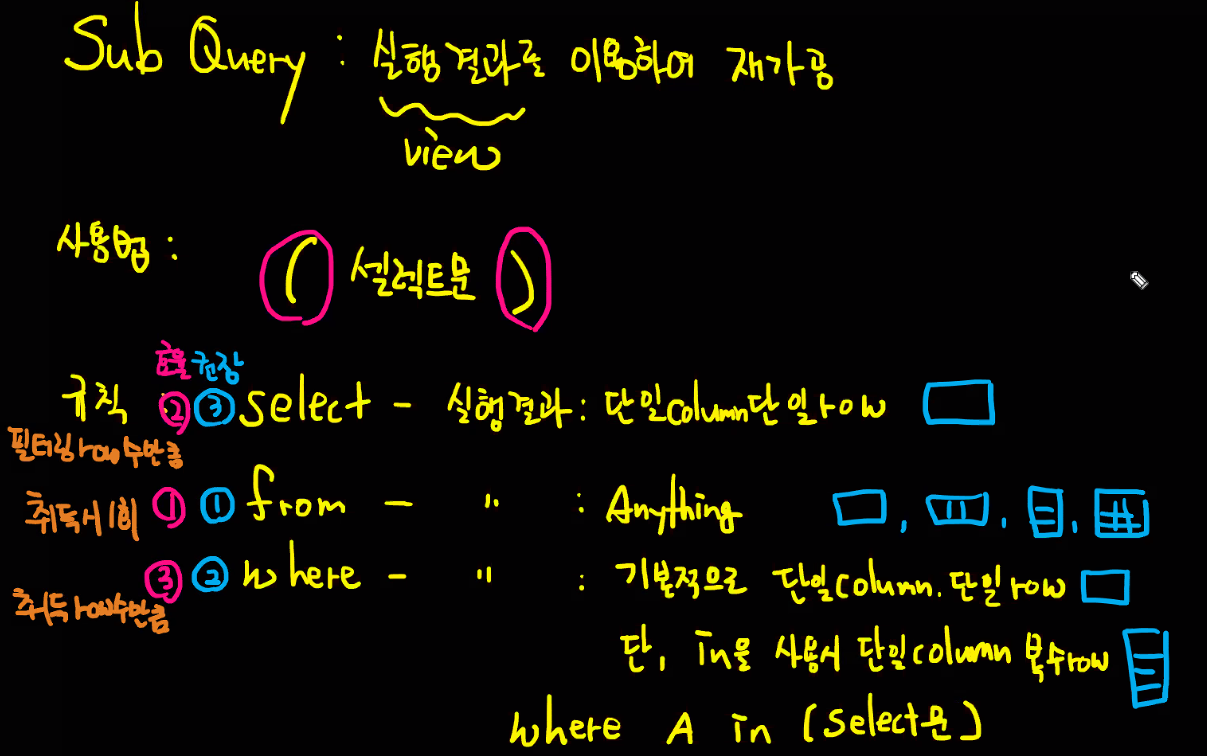 Sub Query : 실행결과를 이용하여 재가공
view
사용법 : ( 셀렉트문 )
효율 권장
규칙 : ② ③ select - 실행결과 : 단일column단일row
필터링row수만큼
취득시1회 ① ① from - 〃 : Anything
③ ② where - 〃 : 기본적으로 단일column.단일row
취득row수만큼
단, in을 사용시 단일column 복수row
where A in (select문)